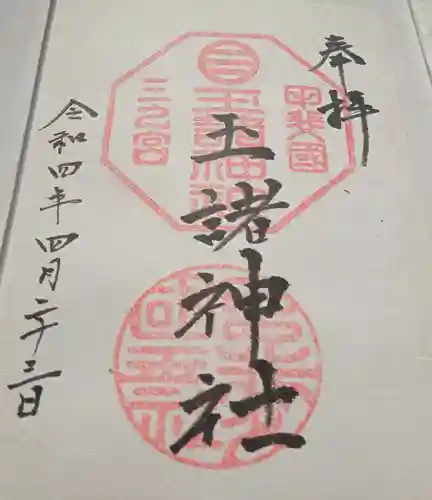 奉拝
甲斐國
玉諸神社
三之宮
令和四年四月二十三日